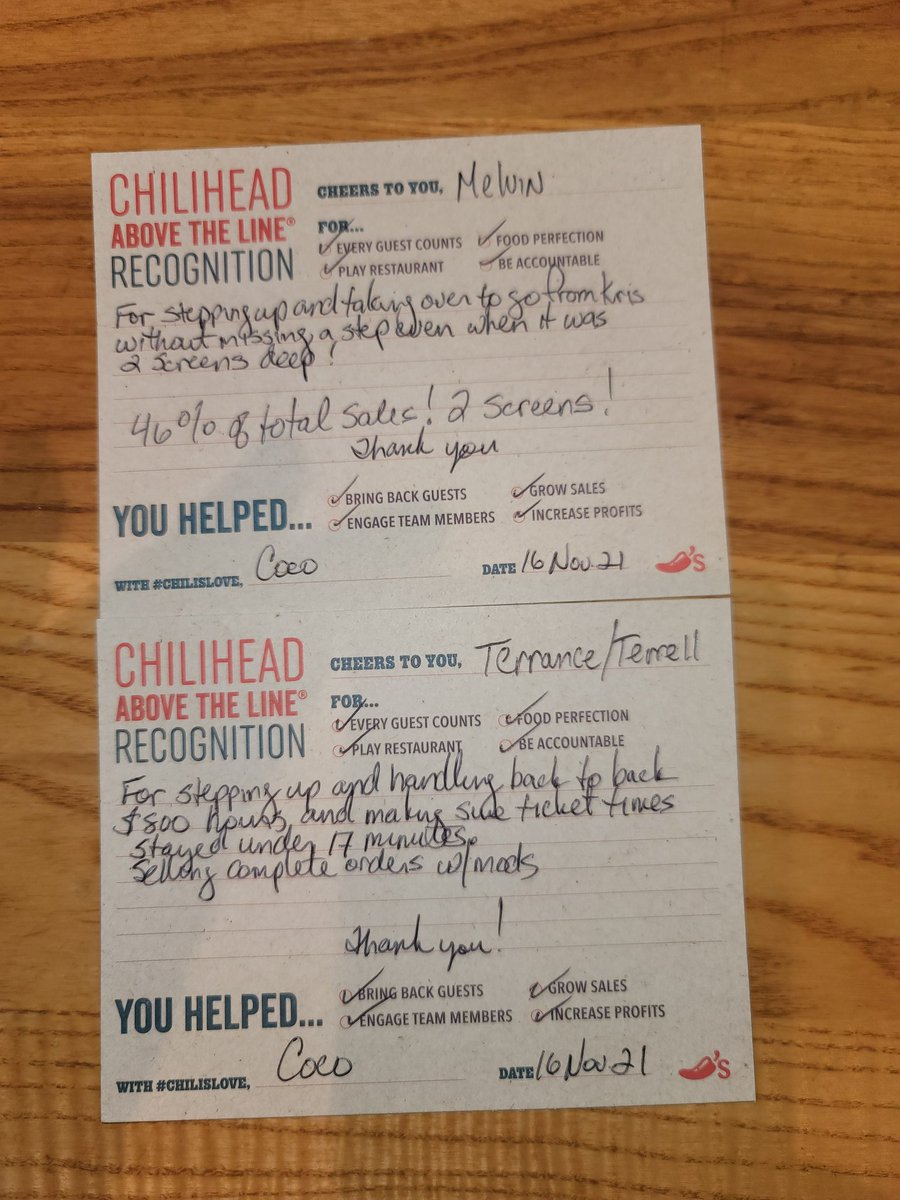 CHILIHEAD
ABOVE THE LINE®
RECOGNITION
CHEERS TO YOU, Melvin
FOR...
EVERY GUEST COUNTS FOOD PERFECTION
PLAY RESTAURANT BE ACCOUNTABLE
For stepping up and taking over to go from Kris
without missing a step even when it was
2 screens deep!
46% of total sales! 2 screens!
Thank you
YOU HELPED...
BRING BACK GUESTS GROW SALES
ENGAGE TEAM MEMBERS INCREASE PROFITS
WITH #CHILISLOVE, Coco DATE 16 Nov. 21
's
CHILIHEAD
ABOVE THE LINE®
RECOGNITION
CHEERS TO YOU, Terrance/Terrell
FOR...
EVERY GUEST COUNTS FOOD PERFECTION
PLAY RESTAURANT BE ACCOUNTABLE
For stepping up and handling back to back
$800 hours, and making sure ticket times
stayed under 17 minutes.
Selling complete orders w/mods
Thank you!
YOU HELPED...
BRING BACK GUESTS GROW SALES
ENGAGE TEAM MEMBERS INCREASE PROFITS
WITH #CHILISLOVE, Coco DATE 16 Nov 21
's